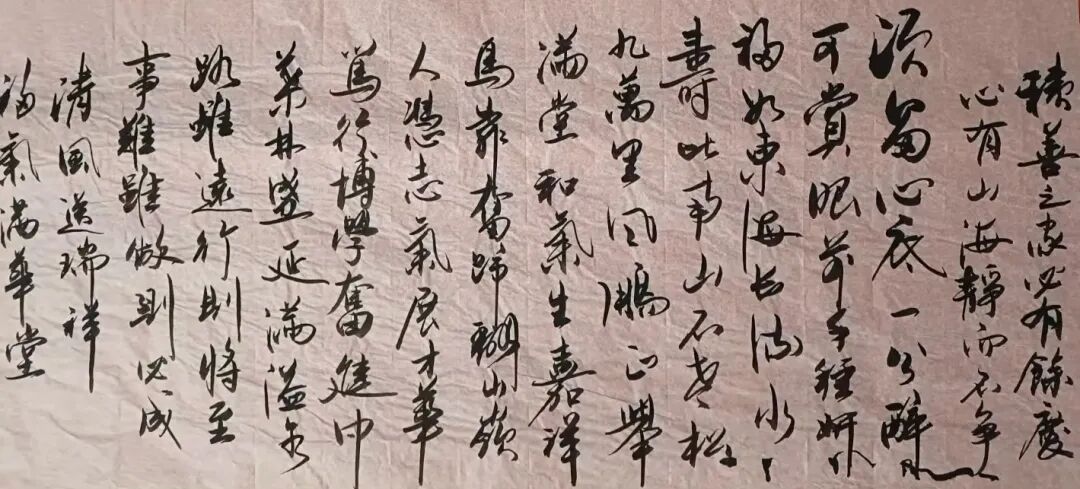 積善之家必有餘慶
心有山海靜而不爭
須留心底一分醉
可賞眼前千種妍
福如東海長流水
壽比南山不老松
九萬里風鵬正舉
滿堂和氣生嘉祥
馬靠奮蹄翻山嶺
人憑志氣展才華
篤行博學奮進中
林盛延滿溢
路雖遠行則將至
事難雖做則必成
清風送瑞祥
福氣滿華堂